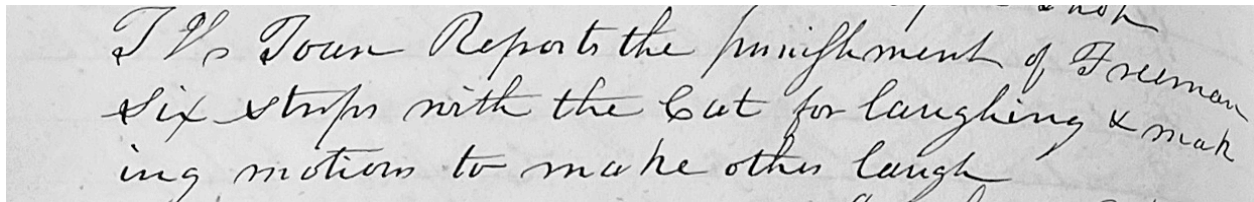 Town Reports the punishment of Freeman
six strips with the Cat for laughing & mak
ing motions to make other laugh